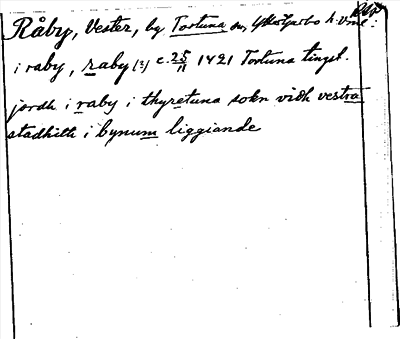 Råby, Vester, by Tortuna sn, Yttertjurbo h. Vml.
i raby, raby (?) c. 25/11 1421 Tortuna tingst.
jordh i raby i thyretuna sokn vidh vestra
stadhith i bynum liggiande